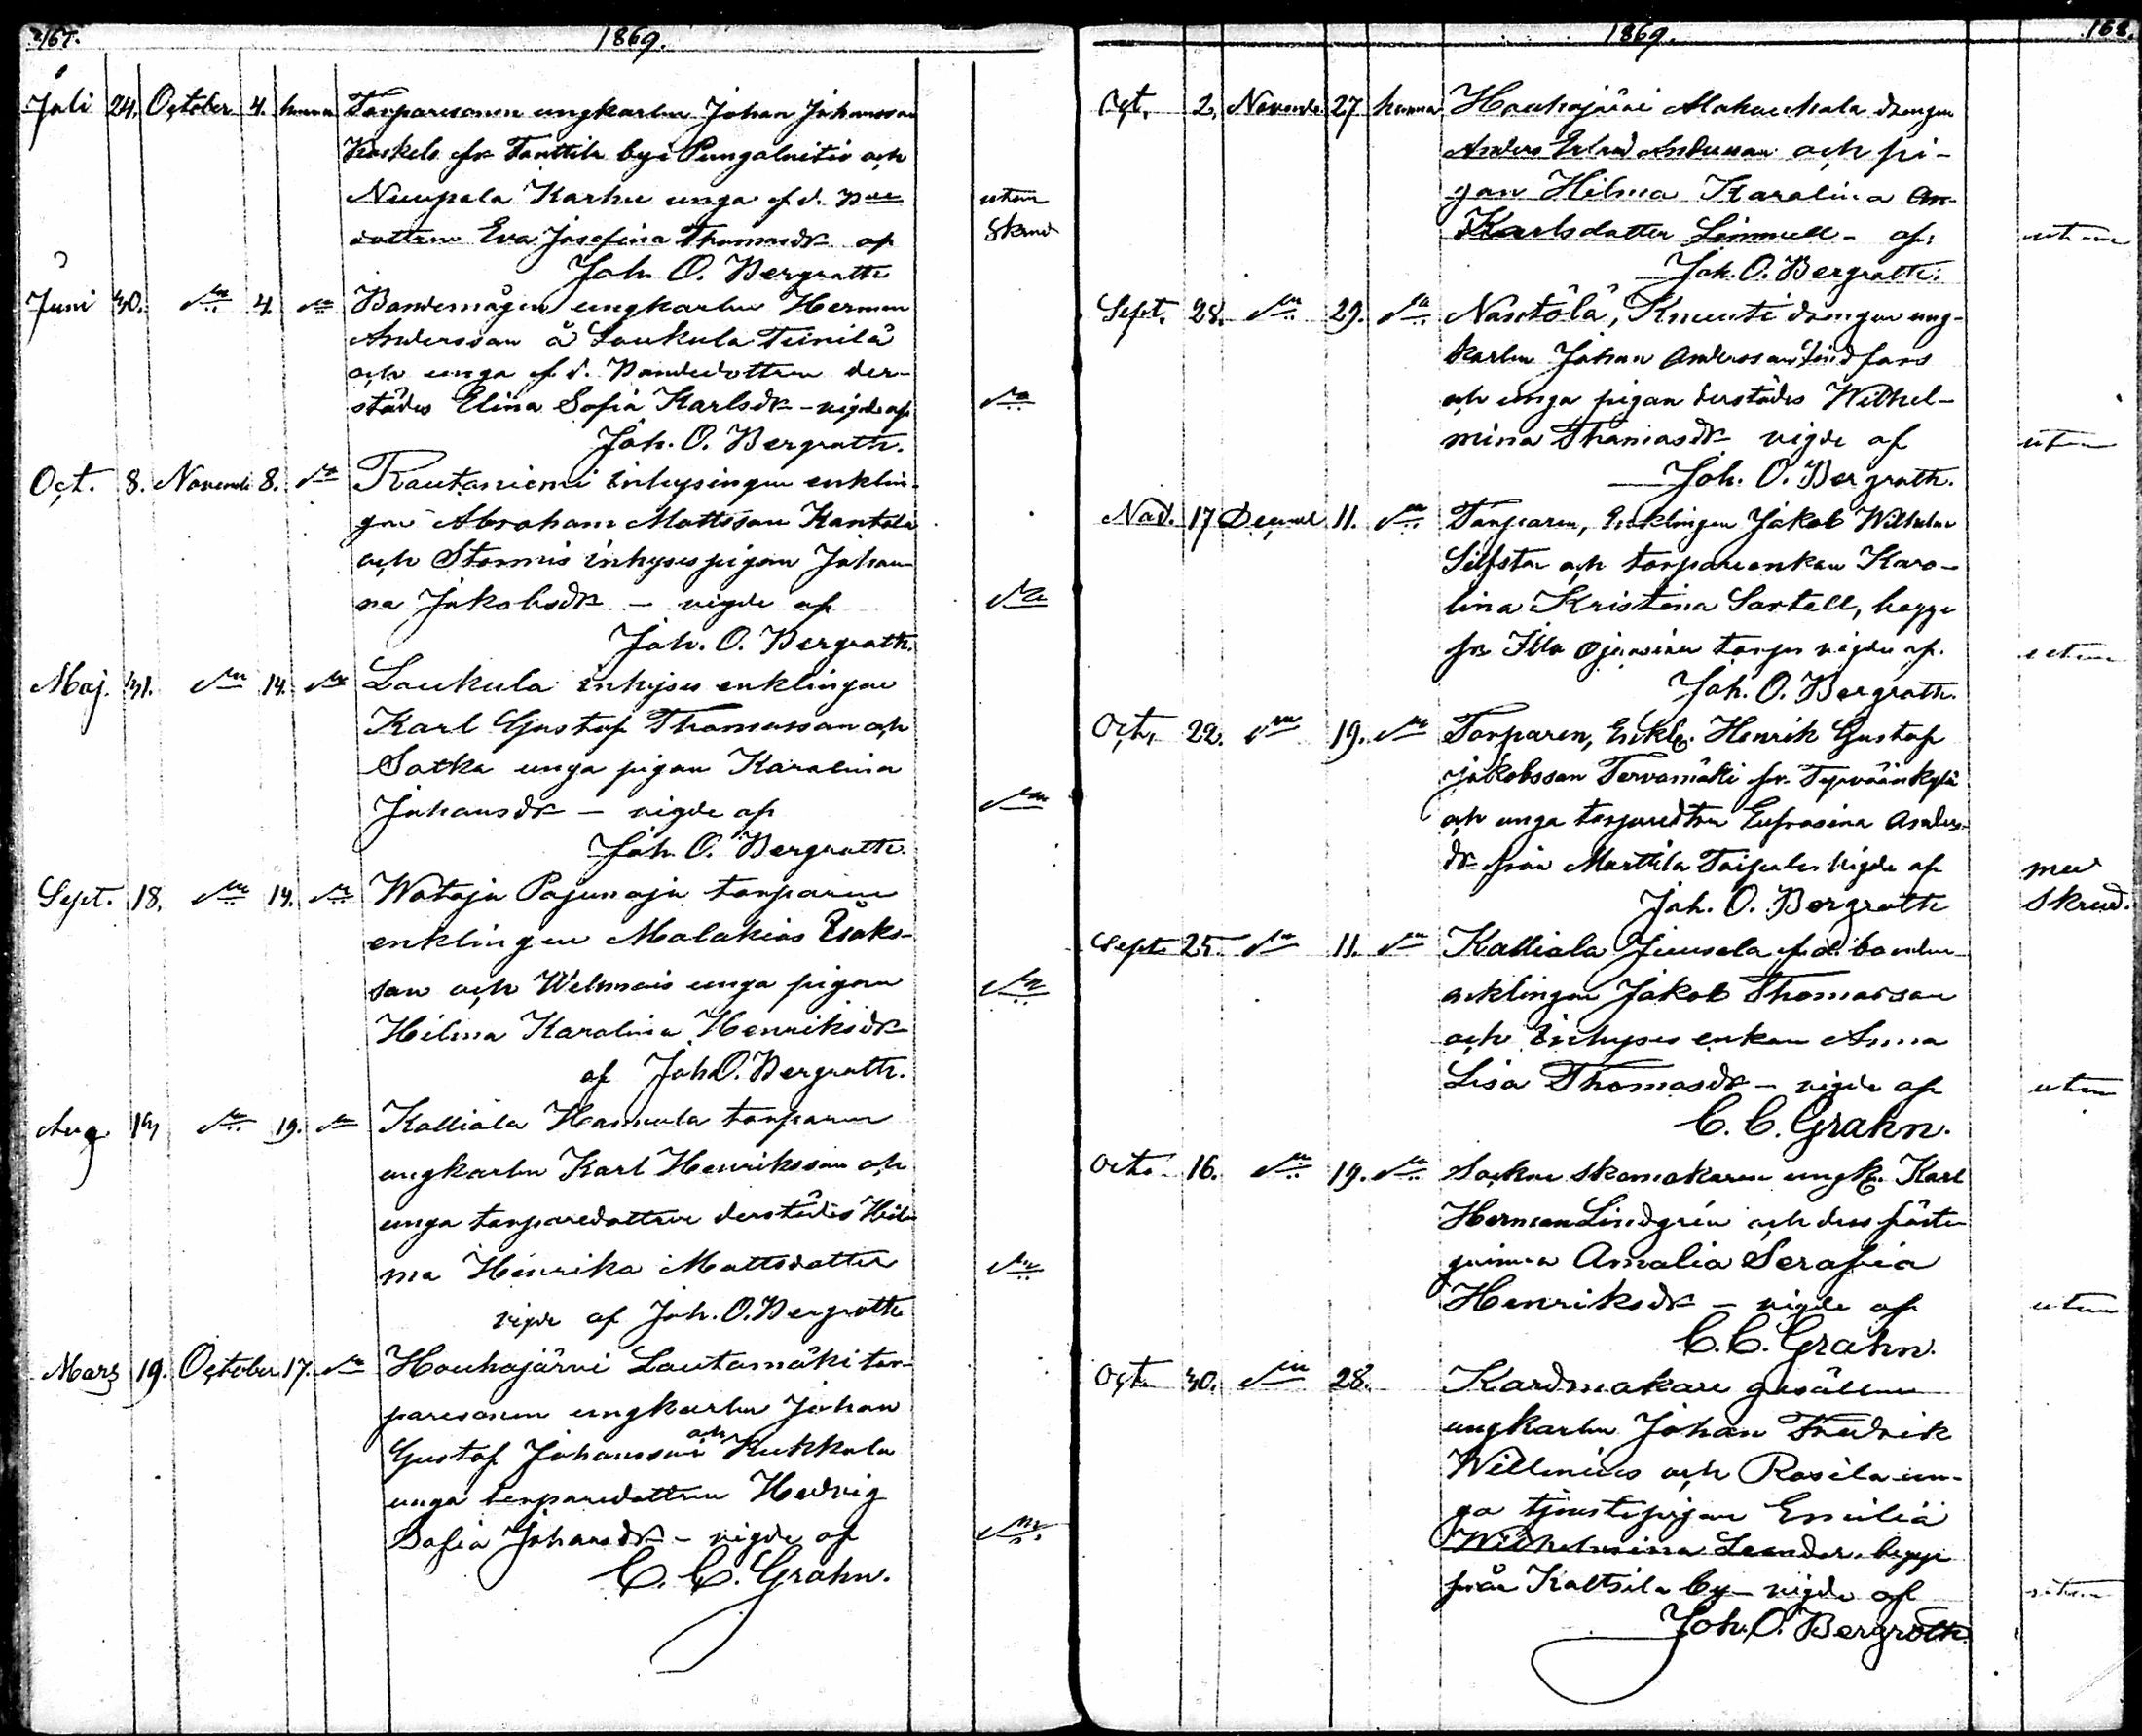 167.
1869.
Juli 24. October 4. henna Torparesonen ungkarlen Johan Johansson
Keskels fr Tanttila by i Pungalaitio och
Nuupala Karhu unga f.d.
dottren Eva Josefina Thomasdr af
utan
Skrud
Joh. O. Bergroth
Juni 30. dn 4. dn Bondemågen ungkarlen Herman
Andersson å Laukula Teinilä
och unga f.d. Bondedottren der-
städes Elina Sofia Karlsdr - vigde af
Joh. O. Bergroth.
Oct. 8. Novemb 8. dn Rautaniemi inhysingen enklin-
gen Abraham Mattsson Kantola
och Stormis inhysespigan Johan-
na Jakobsdr - vigde af
Joh. O. Bergroth.
Maj. 31. dn 14. dn Laukula inhyses enklingen
Karl Gustaf Thomasson och
Satka unga pigan Karolina
Johansdr - vigde af
Joh. O. Bergroth.
Sept. 18. dn 14. dn Wataja Pajunoja torparen
enklingen Malakias Isaks-
son och Welmais unga pigan
Hilma Karolina Henriksdr
af Joh O. Bergroth.
Aug dn 19. dn Kalliala Hannula torparen
ungkarlen Karl Henriksson och
unga torparedottren derstädes Hil-
ma Henrika Mattsdotter
vigde af Joh. O. Bergroth
Mars 19. October 17. dn Houhajärvi Lautamäki tor-
paresonen ungkarlen Johan
Gustaf Johansson och Kukkola
unga torparedottren Hedvig
Sofia Johansdr - vigde af
C. C. Grahn.
1869.
168.
Oct. 2. Novemb 27 henna Houhajärvi Alahaukala drengen
Anders Erland Andersson och pi-
gan Hilma Karolina An-
Karlsdotter Limnell - af:
utan
Joh. O. Bergroth.
Sept. 28. dn 29. dn Näntölä, Knuuti drengen ung-
karlen Johan Andersson Lindfors
och unga pigan derstädes Wilhel-
mina Thomasdr vigde af
utan
Joh. O. Bergroth.
17 Decemb 11. dn Torparen, Enklingen Jakob Wilhelm
Silfstar och torpareenkan Karo-
lina Kristina Sartell, begge
fr Illo torp vigde af.
utan
Joh. O. Bergroth.
Oct. 22. dn 19. dn Torparen, Enkl. Henrik Gustaf
Jakobsson Tervamäki fr. Tyrväänkylä
och unga torparedtrn Eufrosina Anders-
dr från Marttila Taipale vigde af
med
Skrud.
Joh. O. Bergroth
Sept. 25. dn 11. dn Kalliala Juusela f.d. bonden
enklingen Jakob Thomasson
och Inhyses enkan Anna
Lisa Thomasdr - vigde af
utan
C. C. Grahn.
Octo. 16. dn 19. dn Sockne skomakaren ungk. Karl
Herman Lindgrén och dess fäste-
quinna Amalia Serafia
Henriksdr - vigde af
utan
C. C. Grahn.
Oct. 30. dn 28. Kardmakare gesällen
ungkarlen Johan Fredrik
Willenius och Rosila un-
ga tjenstepigan Emilia
Wilhelmina Leander. begge
från Kaltsila by - vigde af
utan
Joh. O. Bergroth.